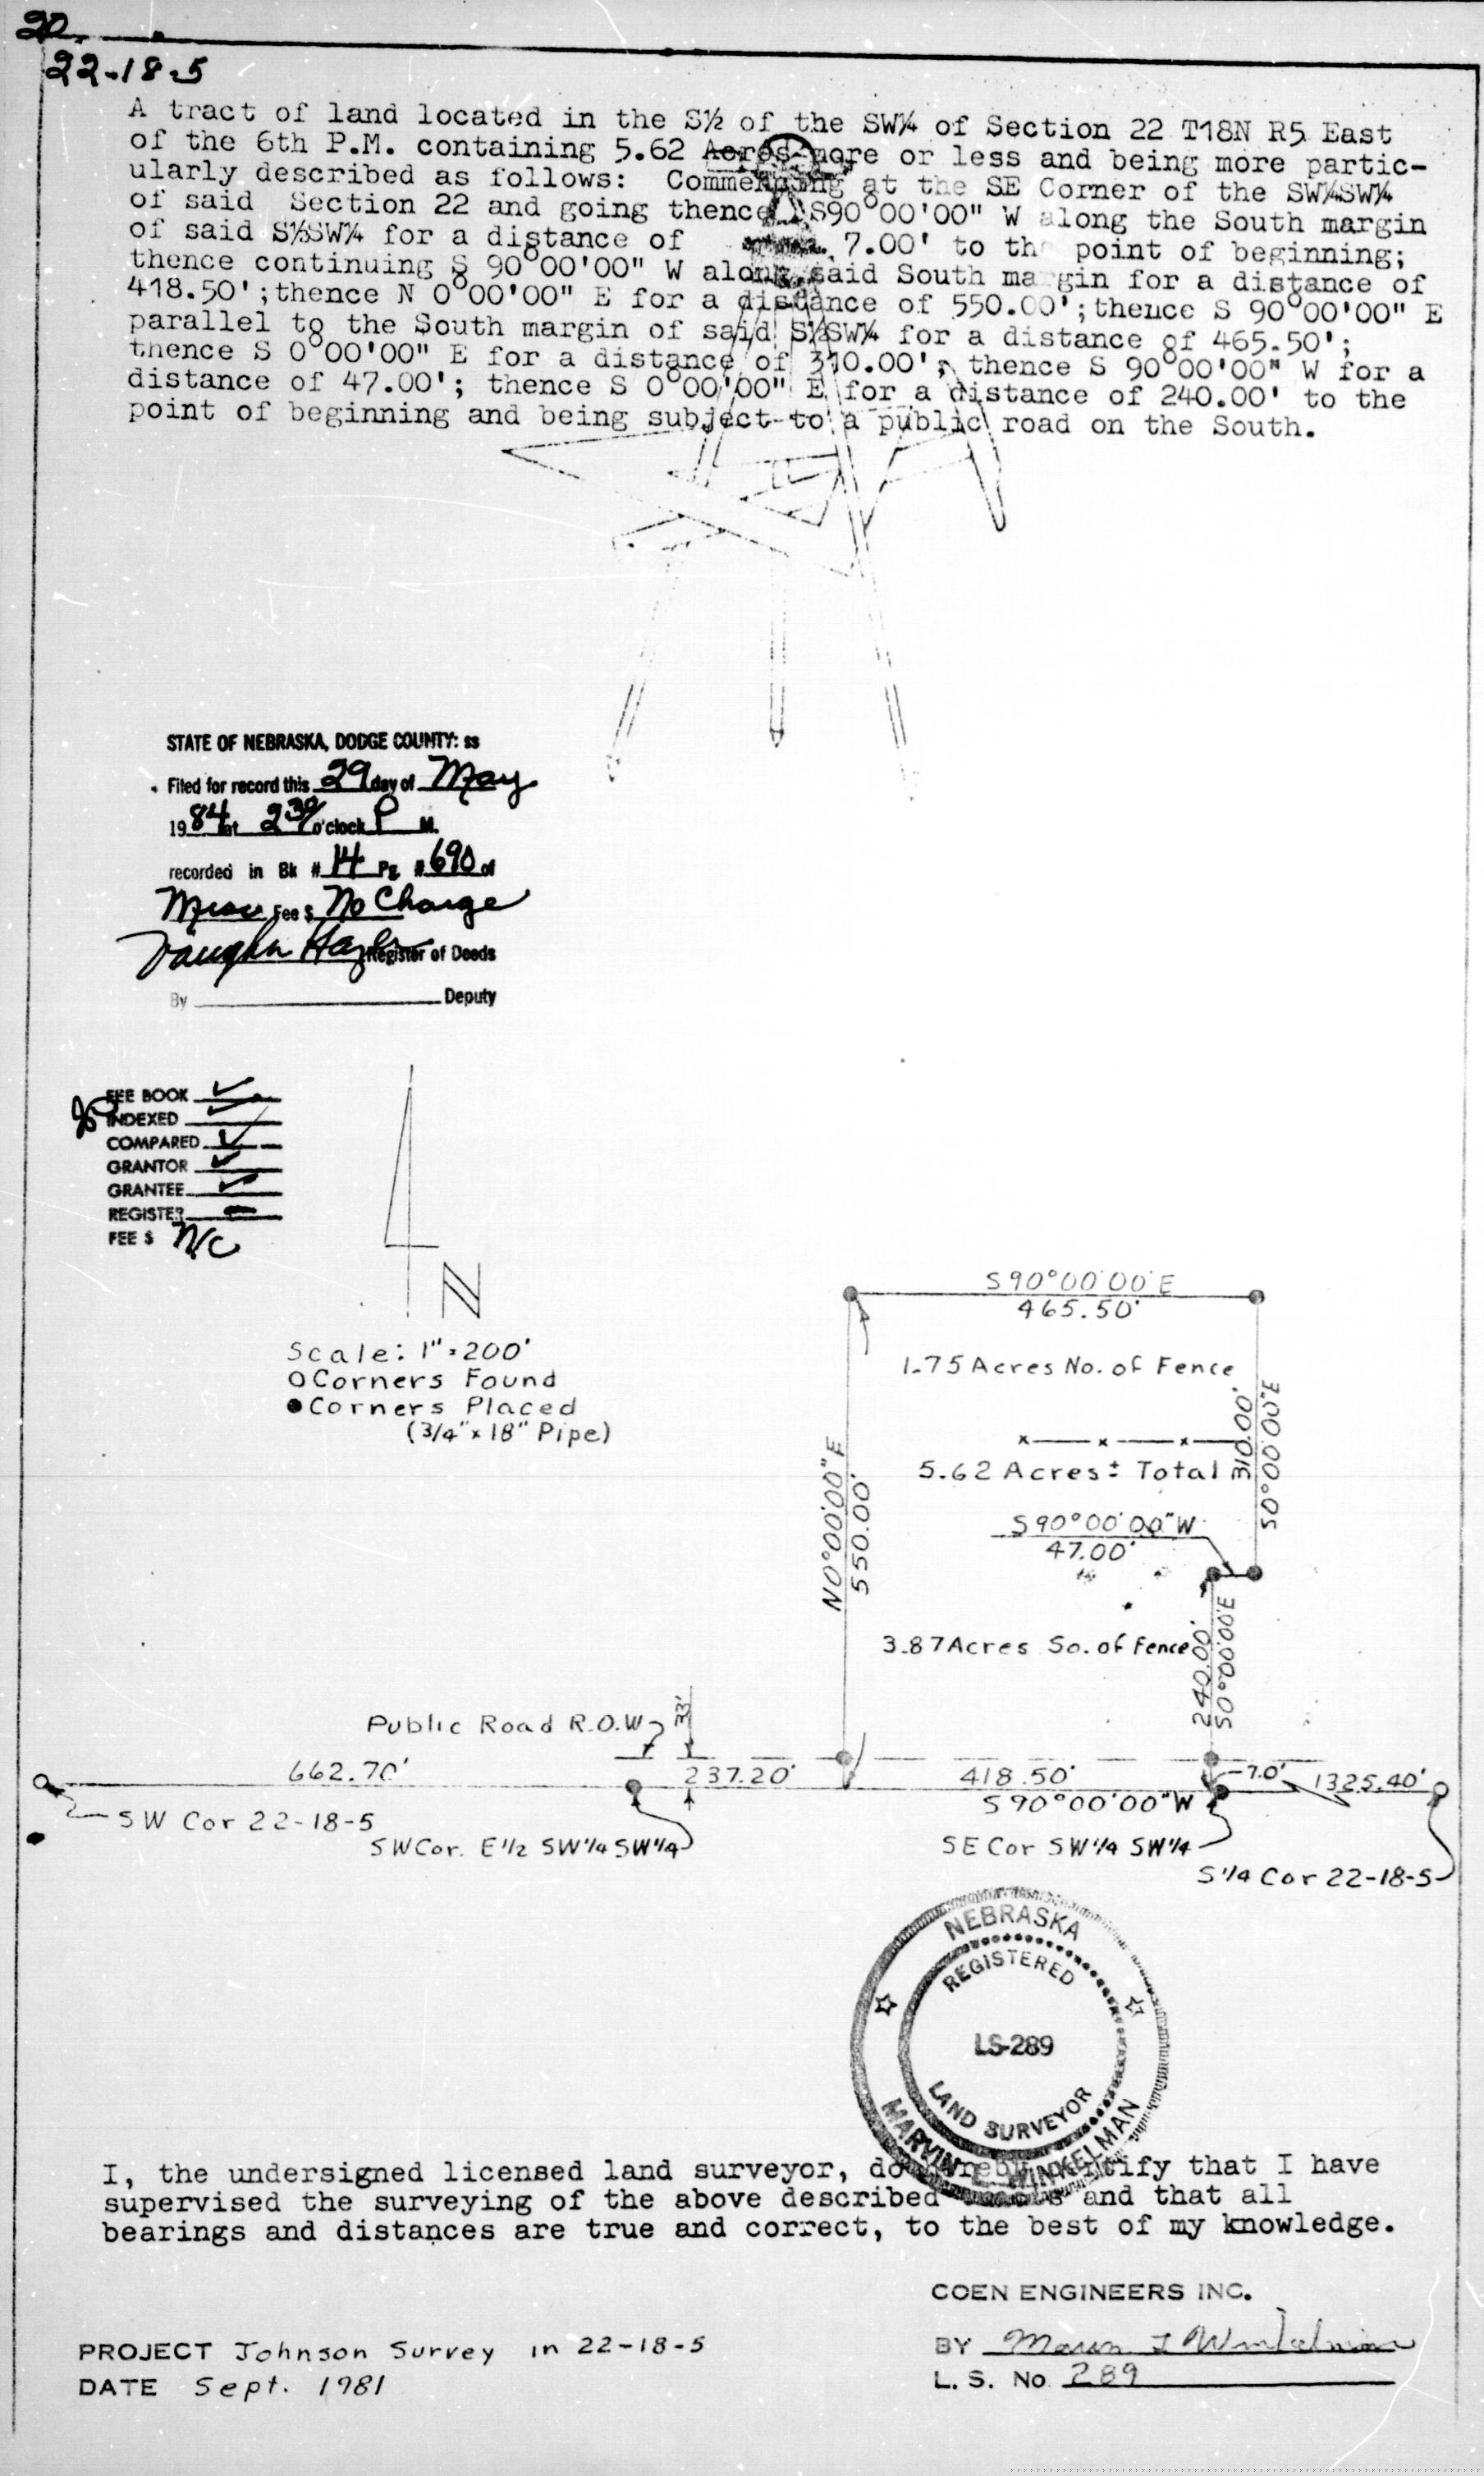 22-18-5
A tract of land located in the S½ of the SW¼ of Section 22 T18N R5 East
of the 6th P.M. containing 5.62 Acres more or less and being more partic-
ularly described as follows: Commencing at the SE Corner of the SW¼SW¼
of said Section 22 and going thence S90°00'00" W along the South margin
of said S½SW¼ for a distance of 7.00' to the point of beginning;
thence continuing S 90°00'00" W along said South margin for a distance of
418.50';thence N 0°00'00" E for a distance of 550.00';thence S 90°00'00" E
parallel to the South margin of said S½SW¼ for a distance of 465.50';
thence S 0°00'00" E for a distance of 310.00'; thence S 90°00'00" W for a
distance of 47.00'; thence S 0°00'00" E for a distance of 240.00' to the
point of beginning and being subject to a public road on the South.
STATE OF NEBRASKA, DODGE COUNTY: ss
Filed for record this 29 day of May
1984 at 2:30 o'clock P M.
recorded in Bk # 14 Pg # 690 of
Misc Fee $ No Charge
Vaughn Register of Deeds
By Deputy
FEE BOOK
INDEXED
COMPARED
GRANTOR
GRANTEE
REGISTER
FEE $ N/C
N
Scale: 1"=200'
Corners Found
Corners Placed
(3/4"x18" Pipe)
S90°00'00"E
465.50'
1.75 Acres No. of Fence
310.00'
S0°00'00"E
5.62 Acres± Total
N0°00'00"E
550.00'
S90°00'00"W
47.00'
3.87 Acres So. of Fence
240.00'
S0°00'00"E
Public Road R.O.W
33'
662.70'
237.20'
418.50'
7.0'
1325.40'
S90°00'00"W
SW Cor 22-18-5
SW Cor. E1/2 SW1/4 SW1/4
SE Cor SW1/4 SW1/4
S1/4 Cor 22-18-5
NEBRASKA
REGISTERED
LS-289
LAND SURVEYOR
MARVIN WINKELMAN
I, the undersigned licensed land surveyor, do hereby certify that I have
supervised the surveying of the above described and that all
bearings and distances are true and correct, to the best of my knowledge.
COEN ENGINEERS INC.
PROJECT Johnson Survey in 22-18-5
BY Marvin L Winkelman
DATE Sept. 1981
L. S. No 289